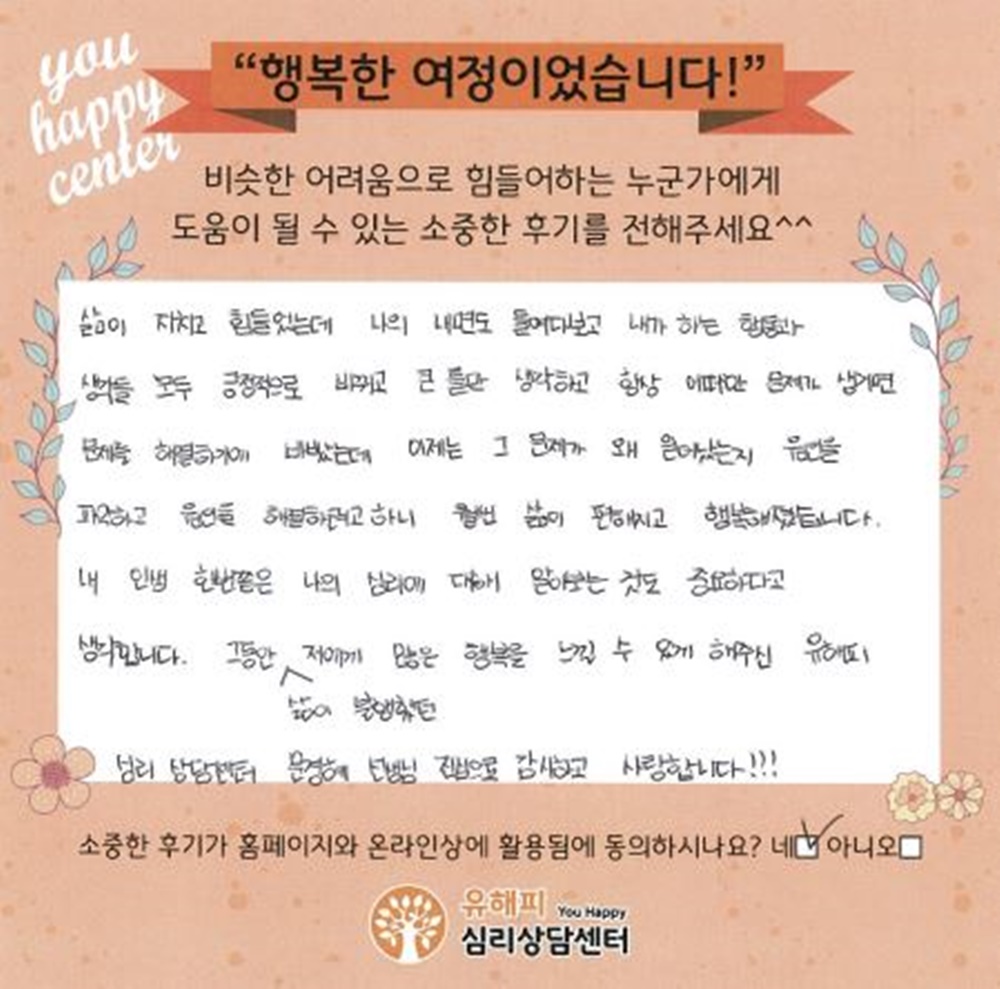 you
happy
center
“행복한 여정이었습니다!”
비슷한 어려움으로 힘들어하는 누군가에게
도움이 될 수 있는 소중한 후기를 전해주세요^^
삶이 지치고 힘들었는데 나의 내면도 들여다보고 내가 하는 행동과
생각들 모두 긍정적으로 바꾸고 큰 틀만 생각하고 항상 어떠한 문제가 생기면
문제를 해결하기에 바빴는데 이제는 그 문제가 왜 일어났는지 원인을
파악하고 원인을 해결하려고 하니 훨씬 삶이 편해지고 행복해졌습니다.
내 인생 한번쯤은 나의 심리에 대해 알아보는 것도 중요하다고
생각합니다. 그동안 저에게 많은 행복을 느낄 수 있게 해주신 유해피
삶이 불행했던
심리 상담센터 문경혜 선생님 진심으로 감사하고 사랑합니다!!!
소중한 후기가 홈페이지와 온라인상에 활용됨에 동의하시나요? 네 아니오
유해피 You Happy
심리상담센터